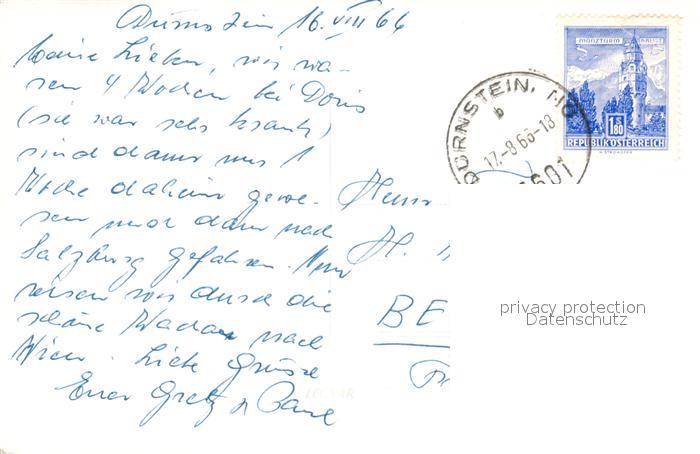 Dürnstein 16. VIII 66
Meine Lieben, wir wa-
ren 4 Wochen bei Doris
(sie war sehr krank)
sind dann nur 1
Woche daheim gewe-
sen und dann nach
Salzburg gefahren. Nun
reisen wir durch die
schöne Wachau nach
Wien. Liebe Grüsse
Euer Gretz u Paul
MÜNZTURM
1.80
REPUBLIK ÖSTERREICH
DÜRNSTEIN, NÖ
b
17.-8.66-18
3601
Herrn
H.
BE
privacy protection
Datenschutz